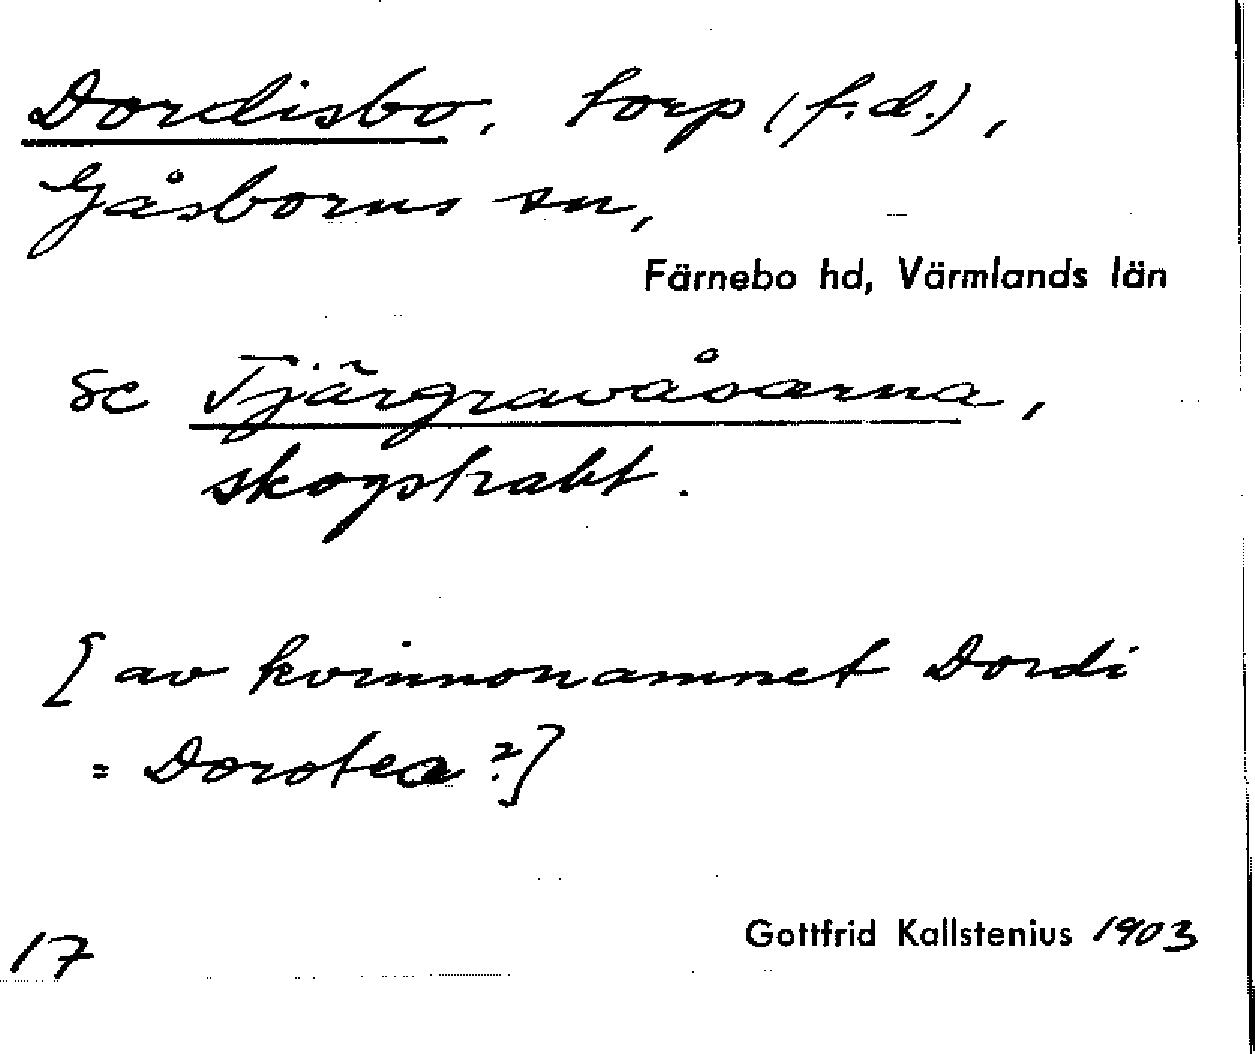 Dordisbo, torp (f.d.),
Gåsborns sn,
Färnebo hd, Värmlands län
se Tjärgravåsarna,
skogstrakt.
[av kvinnonamnet Dordi
= Dorotea?]
17
Gottfrid Kallstenius 1903